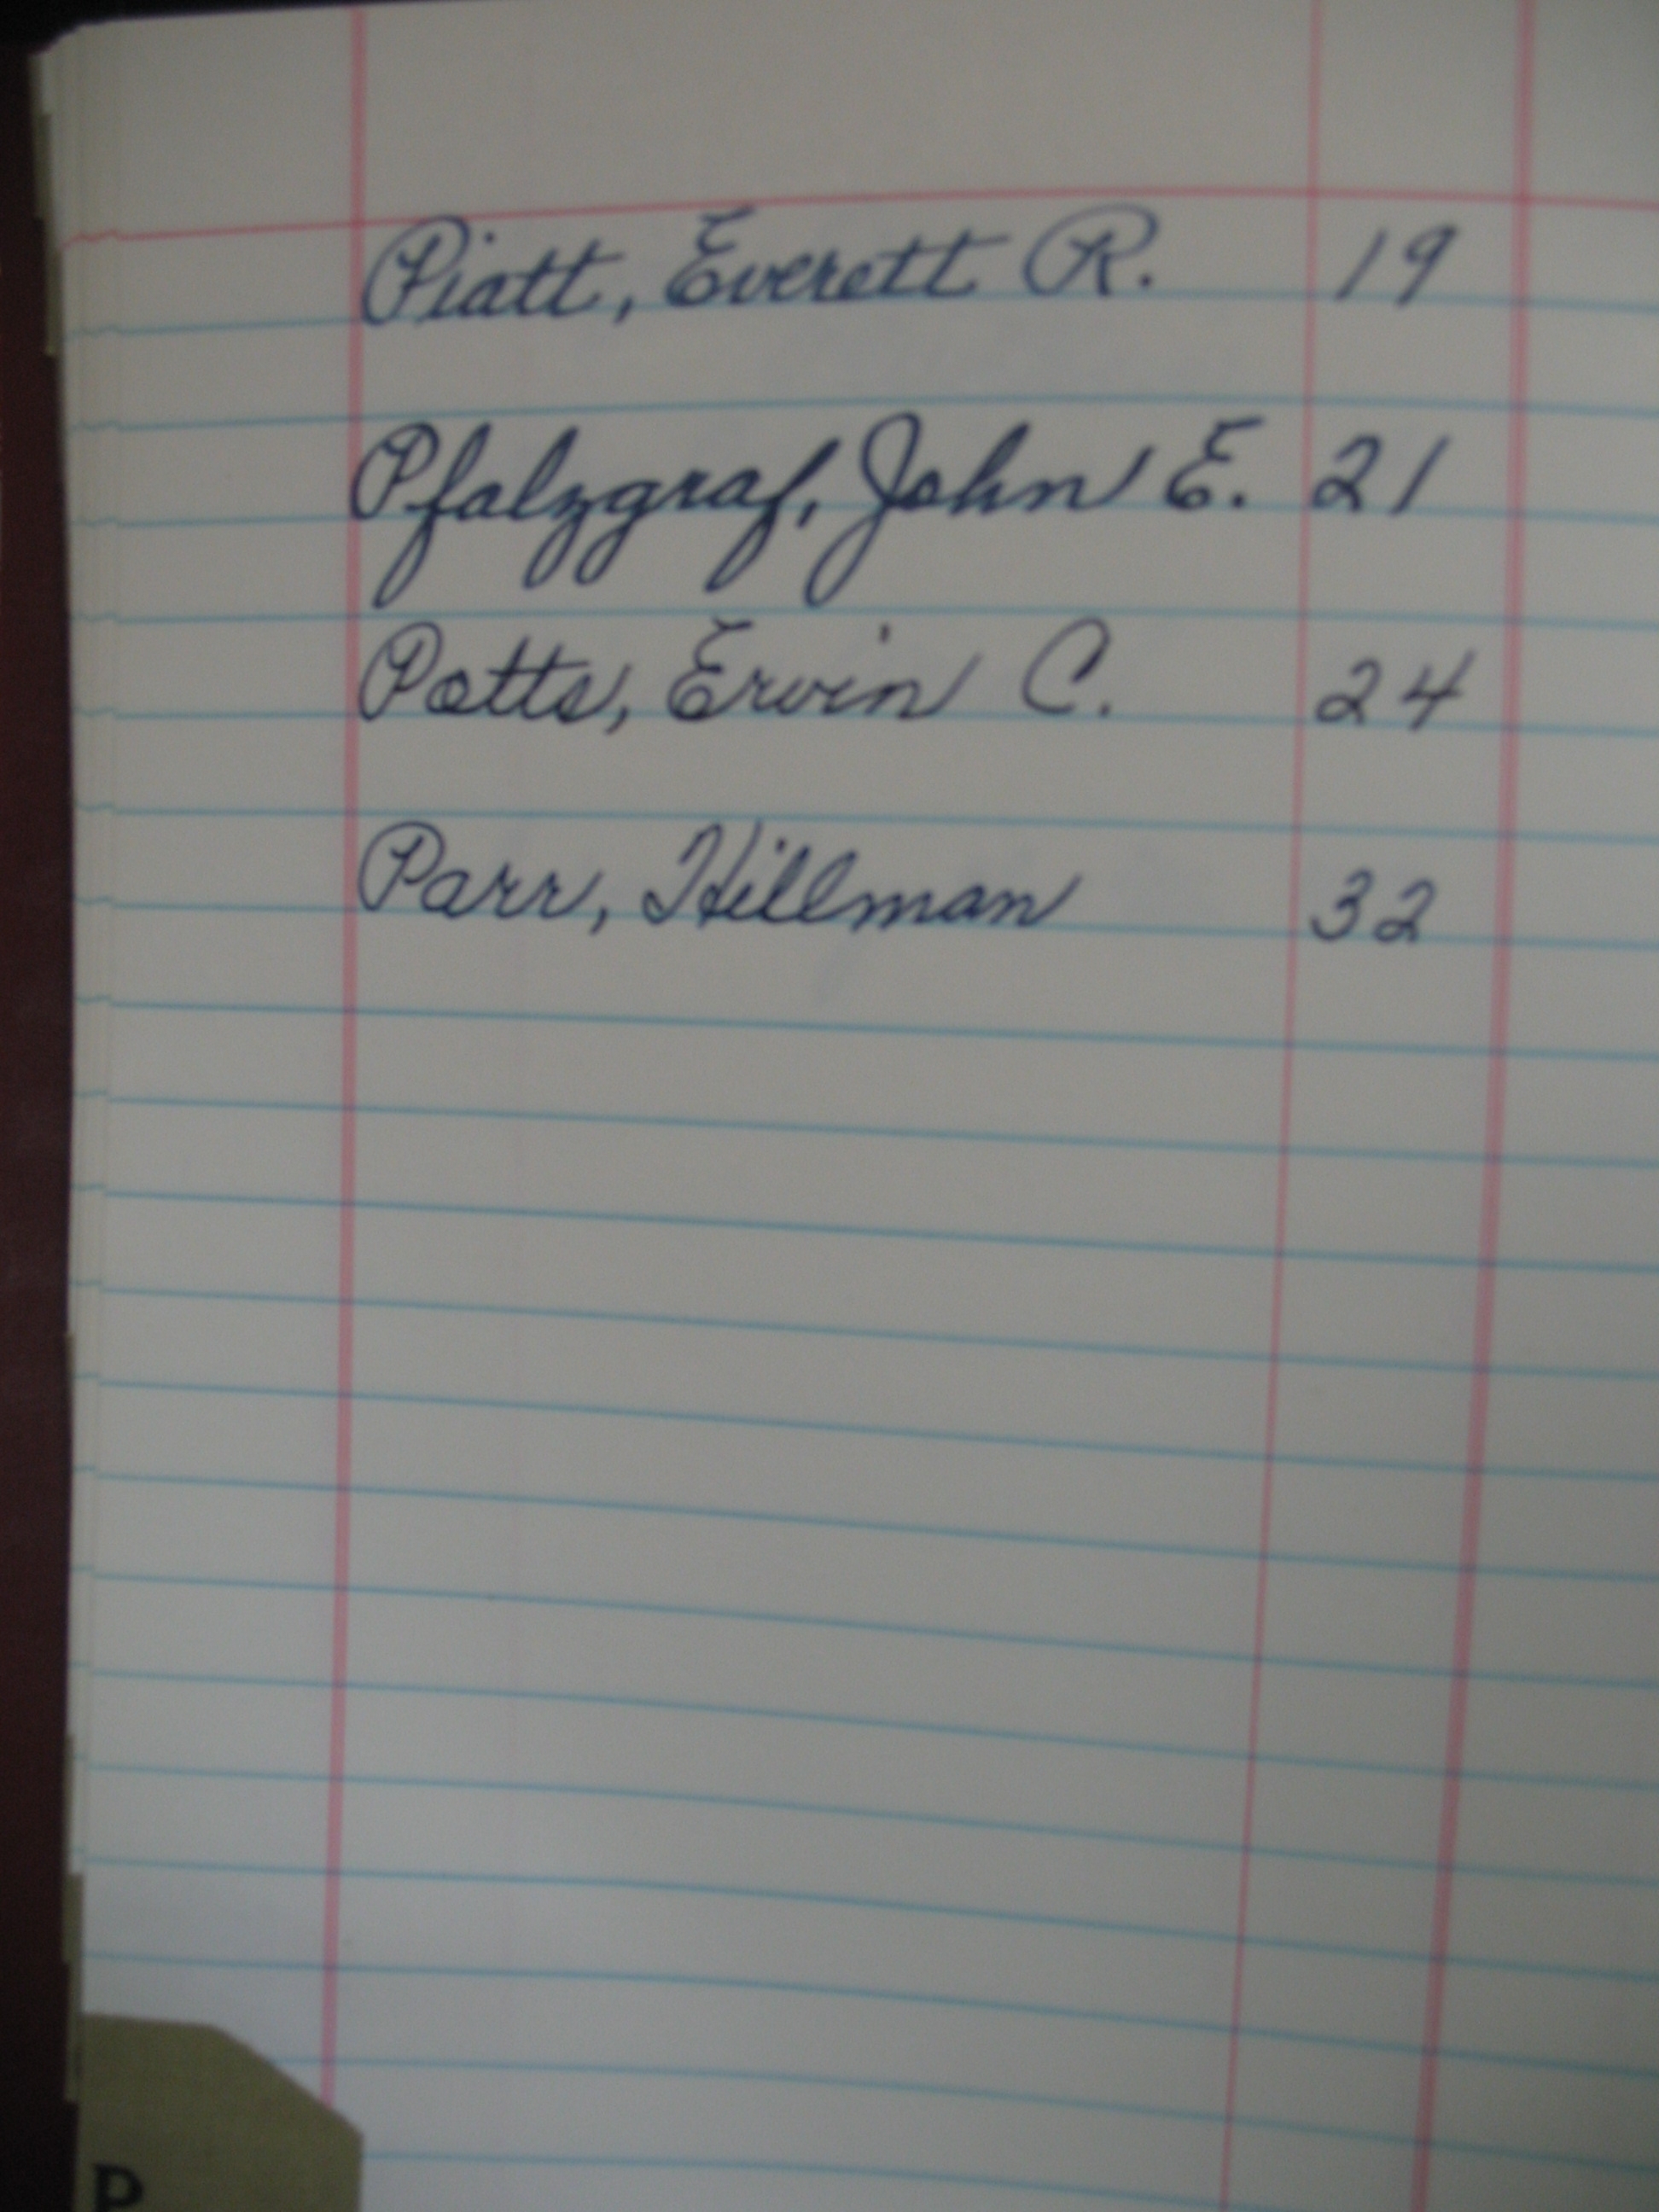 Piatt, Everett R. 19
Pfalzgraf, John E. 21
Potts, Ervin C. 24
Parr, Hillman 32
P